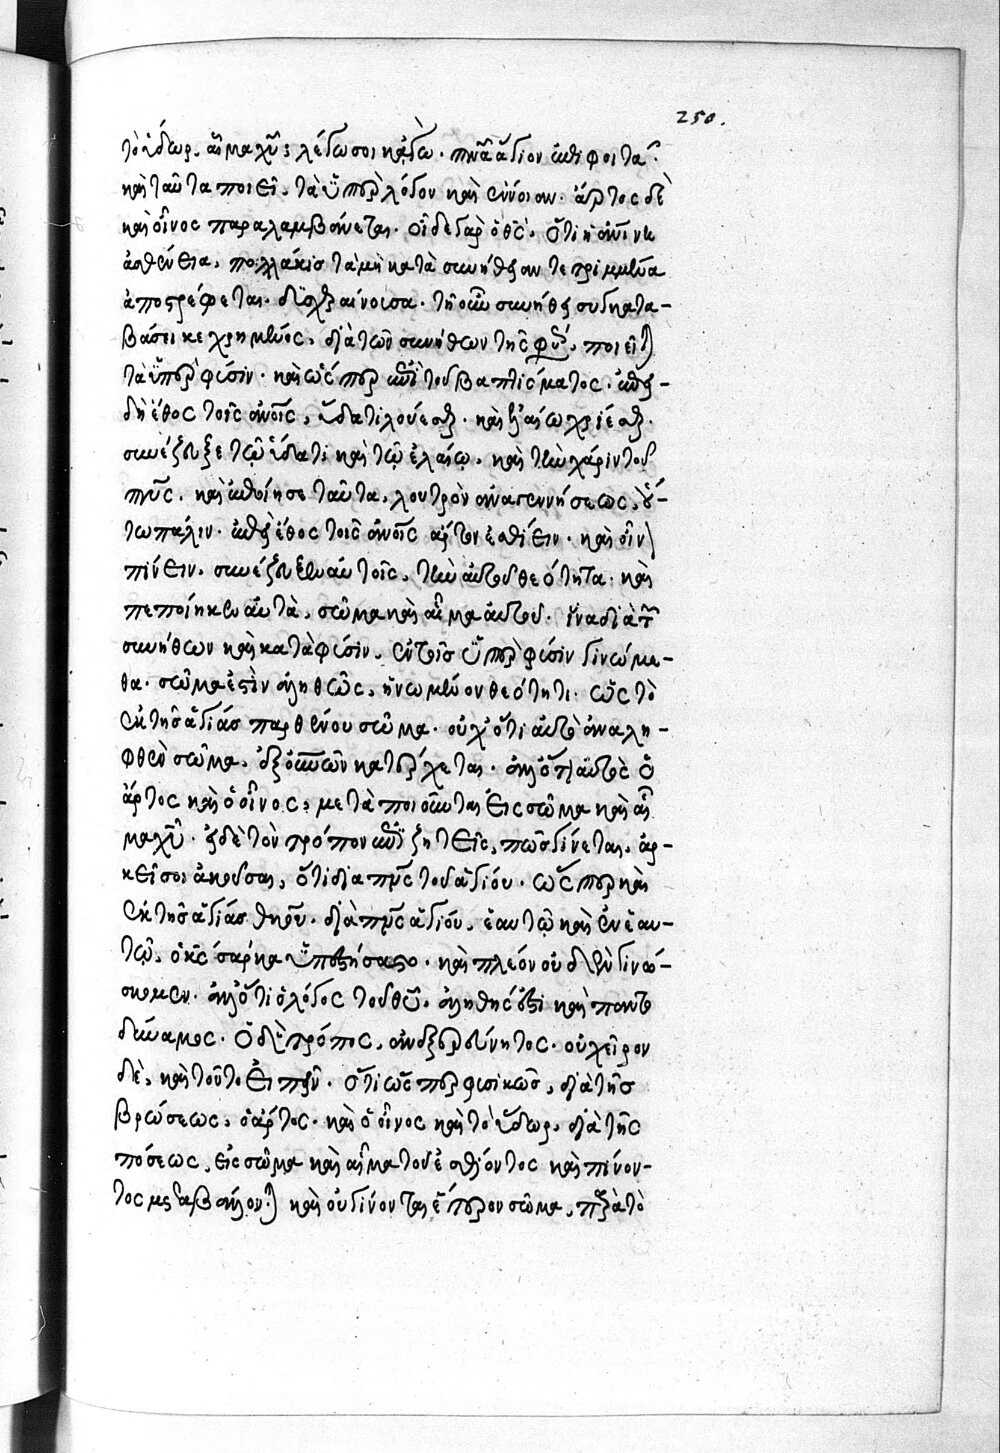 250.
τὸ ὕδωρ, αἷμα χῦ; λέγω σοι κἀγὼ. πνᾶ ἅγιον ἐπιφοιτᾶ.
καὶ ταῦτα ποιεῖ, τὰ ὑπὲρ λόγον καὶ ἔννοιαν. ἄρτος δὲ
καὶ οἶνος παραλαμβάνεται. οἶδε γὰρ ὁ θς̀. ὅτι ἡ ἀνίνη
ἀσθένεια, πολλάκις τὰ μὴ κατὰ συνήθειαν τετριμμένα
ἀποστρέφεται. δυσχεραίνουσα. τῇ οὖν συνήθει συγκατα-
βάσει κεχρημένος, διὰ τῶν συνήθων τῆς φύσ, ποιεῖ
τὰ ὑπὲρ φύσιν. καὶ ὥσπερ ἐπὶ τοῦ βαπτίσματος. ἐπει-
δὴ ἔθος τοῖς ἀνοῖς, ὕδατι λούεσθαι. καὶ ἐλαίω χρίεσθαι.
συνέζευξε τῶ ὕδατι καὶ τῶ ἐλαίω, καὶ τὴν χάριν τοῦ
πνς, καὶ ἐποίησε ταῦτα, λουτρὸν ἀναγεννήσεως, οὕ-
τω πάλιν. ἐπεὶ ἔθος τοῖς ἀνοῖς ἄρτον ἐσθίειν. καὶ οἶν
πίνειν. συνέζευξεν αὐτοῖς, τὴν αὐτοῦ θεότητα. καὶ
πεποίηκεν αὐτὰ, σῶμα καὶ αἷμα αὐτοῦ. ἵνα διὰ τ
συνήθων καὶ κατὰ φύσιν, ἐν τοῖς ὑπὲρ φύσιν γινώμε-
θα. σῶμα ἐστὶν ἀληθῶς, ἡνωμένον θεότητι. ὡς τὸ
ἐκ τῆς ἁγίας παρθένου σῶμα. οὐχ ὅτι αὐτὸ ἀναλη-
φθὲν σῶμα, ἐξ οὐνῶν κατέρχεται. ἀλλ ὅτι αὐτὸς ὁ
ἄρτος καὶ ὁ οἶνος, μεταποιοῦνται εἰς σῶμα καὶ αἷ
μα χῦ. εἰ δὲ τὸν τρόπον ἐπιζητεῖς, πῶς γίνεται, ἀρ-
κεῖ σοι ἀκοῦσαι, ὅτι διὰ πνς τοῦ ἁγίου. ὥσπερ καὶ
ἐκ τῆς ἁγίας θκου. διὰ πνς ἁγίου, ἑαυτῶ καὶ ἐν ἑαυ-
τῶ, ὁ κς σάρκα ὑπεστήσατο. καὶ πλέον οὐδὲν γινώ-
σκομεν. ἀλλ ὅτι ὁ λόγος τοῦ θῦ, ἀληθής ἐστι καὶ παντο
δύναμος. ὁ δὲ τρόπος, ἀνεξερεύνητος. οὐ χεῖρον
δὲ, καὶ τοῦτο εἰπεῖν. ὅτι ὥσπερ φυσικῶς, διὰ τῆς
βρώσεως, ὁ ἄρτος. καὶ ὁ οἶνος καὶ τὸ ὕδωρ, διὰ τῆς
πόσεως, εἰς σῶμα καὶ αἷμα τοῦ ἐσθίοντος καὶ πίνον-
τος μεταβάλλον καὶ οὐ γίνονται ἕτερον σῶμα, παρὰ τὸ